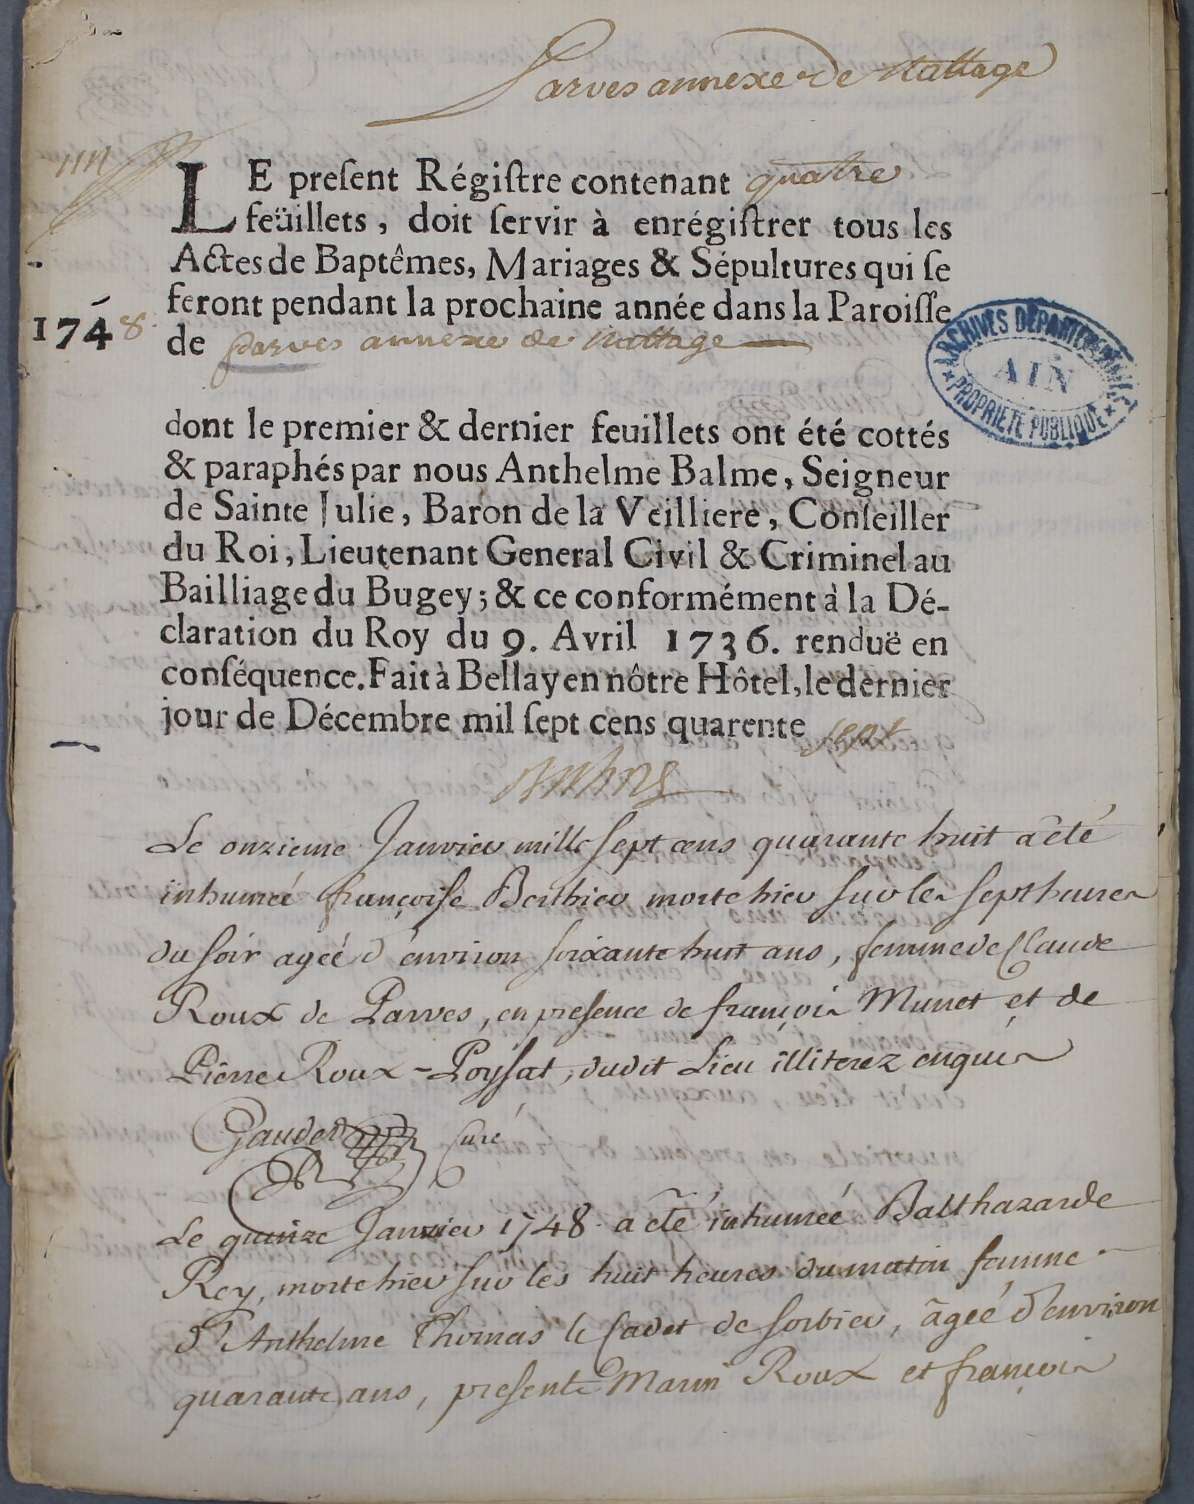 Parves annexe de Nattage
LE present Régistre contenant quatre
feüillets, doit servir à enrégistrer tous les
Actes de Baptêmes, Mariages & Sépultures qui se
feront pendant la prochaine année dans la Paroisse
1748.
de parves annexe de Nattage
ARCHIVES DÉPARTEMENTALES
AIN
PROPRIÉTÉ PUBLIQUE
dont le premier & dernier feuillets ont été cottés
& paraphés par nous Anthelme Balme, Seigneur
de Sainte Julie, Baron de la Veilliere, Conseiller
du Roi, Lieutenant General Civil & Criminel au
Bailliage du Bugey; & ce conformément à la Dé-
claration du Roy du 9. Avril 1736. renduë en
conséquence. Fait à Bellay en nôtre Hôtel, le dernier
jour de Décembre mil sept cens quarente sept
Le onzieme Janvier mille sept cens quarante huit a été
inhumeé françoise Berthier morte hier sur les sept heures
du soir ageé d'environ soixante huit ans, femme de Claude
Roux de Parves, en presence de françois Munet et de
Pierre Roux-Poysat, dudit Lieu illiterez enquis
Gaudet Curé
Le quinze Janvier 1748. a été inhumeé Balthazarde
Rey, morte hier sur les huit heures du matin femme
d'Anthelme Thomas le Cadet de Sorbier, âgeé d'environ
quarante ans, presents Marin Roux et françois